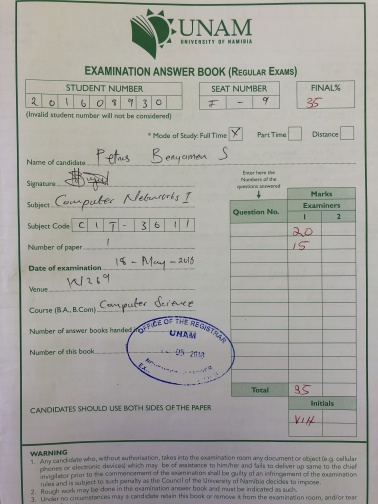 UNAM
UNIVERSITY OF NAMIBIA
EXAMINATION ANSWER BOOK (REGULAR EXAMS)
STUDENT NUMBER SEAT NUMBER FINAL%
201608930 F-9 35
(Invalid student number will not be considered)
* Mode of Study: Full Time X Part Time Distance
Name of candidate Petrus Benyamen S
Signature
Enter here the Numbers of the questions answered
Subject Computer Networks I
Marks
Question No. Examiners
1 2
Subject Code CIT-3611
20
Number of paper 1
15
Date of examination 18-May-2018
Venue W269
Course (B.A., B.Com) Computer Science
Number of answer books handed
OFFICE OF THE REGISTRAR
UNAM
05 2018
Number of this book
Total 35
CANDIDATES SHOULD USE BOTH SIDES OF THE PAPER
Initials
WARNING
1. Any candidate who, without authorisation, takes into the examination room any document or object (e.g. cellular
phones or electronic devices) which may be of assistance to him/her and fails to deliver up same to the chief
invigilator prior to the commencement of the examination shall be guilty of an infringement of the examination
rules and is subject to such penalty as the Council of the University of Namibia decides to impose.
2. Rough work may be done in the examination answer book and must be indicated as such.
3. Under no circumstances may a candidate retain this book or remove it from the examination room, and/or tear